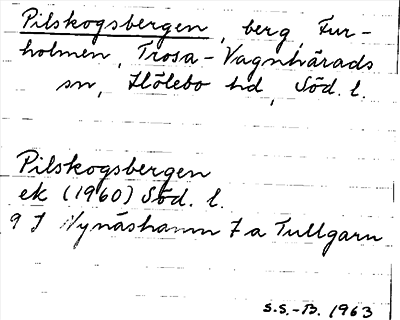 Pilskogsbergen, berg, Fur-
holmen, Trosa-Vagnhärads
sn, Hölebo hd, Söd. l.
Pilskogsbergen
ek (1960) Söd. l.
9 I Nynäshamn 7 a Tullgarn
S.S.-B. 1963